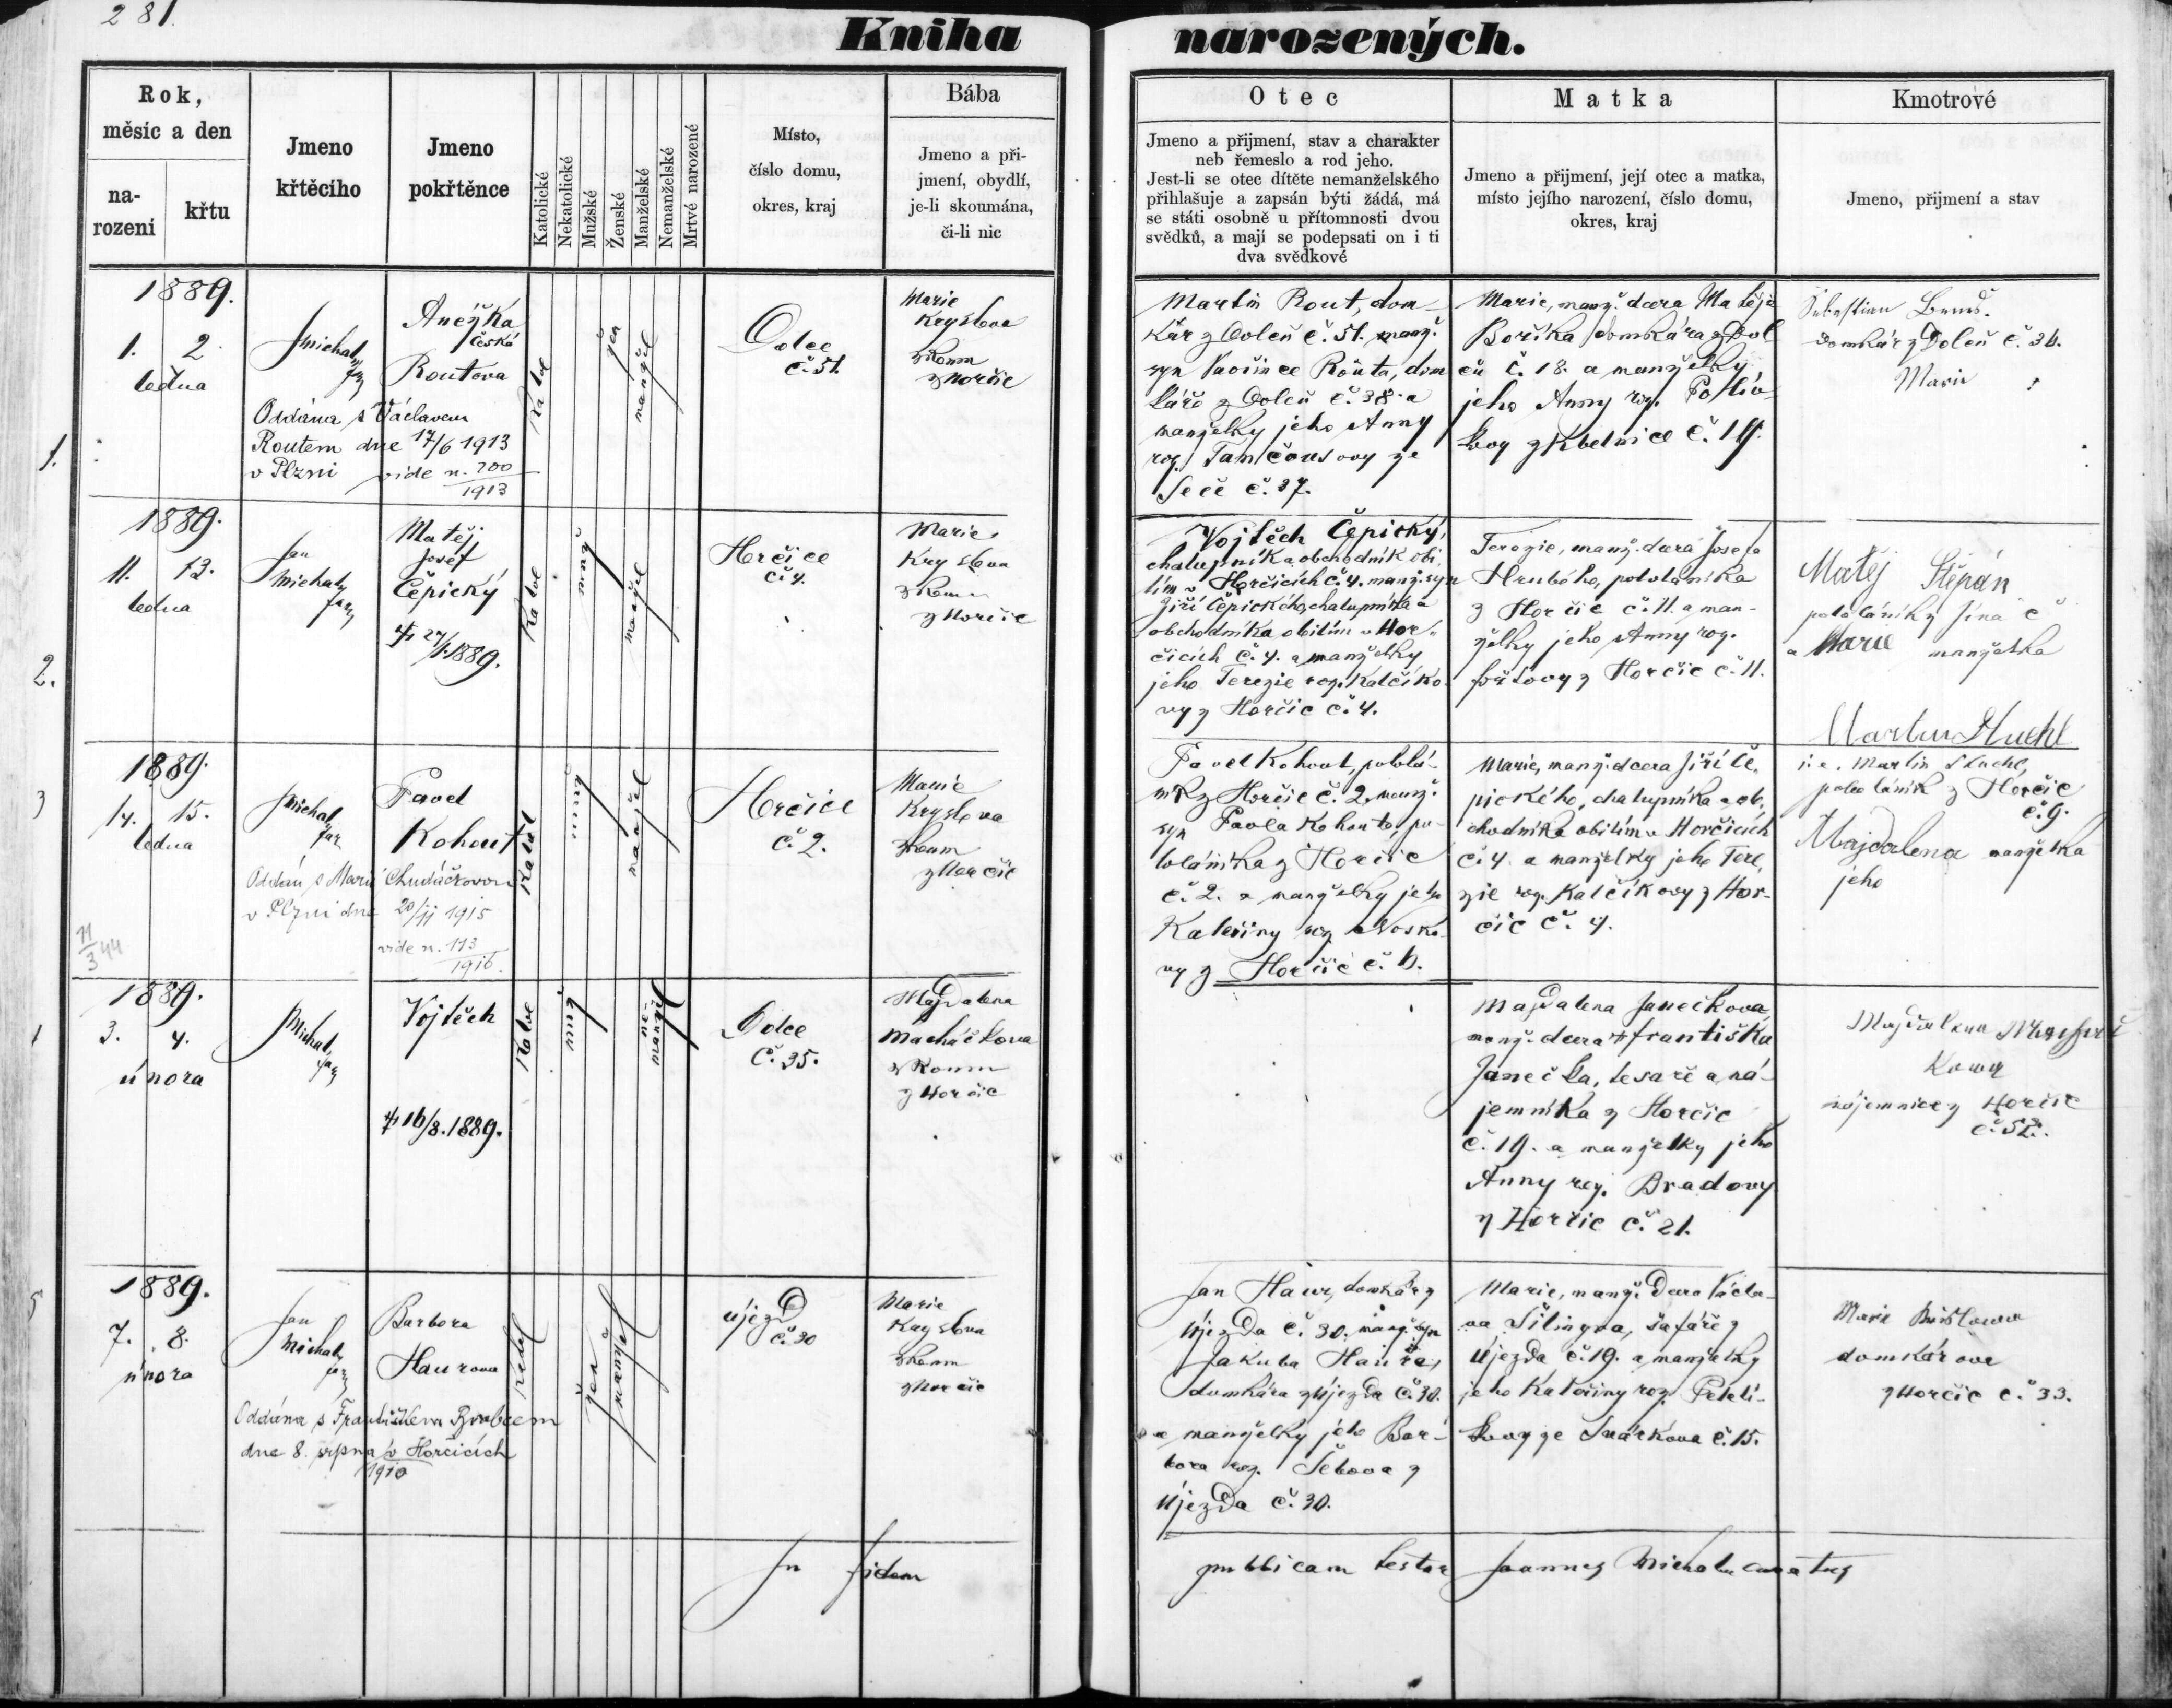 281.
Kniha narozených.
Rok,
měsíc a den
na-
rození
křtu
Jmeno
křtěcího
Jmeno
pokřtěnce
Katolické
Nekatolické
Mužské
Ženské
Manželské
Nemanželské
Mrtvé narozené
Místo,
číslo domu,
okres, kraj
Bába
Jmeno a při-
jmení, obydlí,
je-li skoumána,
či-li nic
Otec
Jmeno a přijmení, stav a charakter
neb řemeslo a rod jeho.
Jest-li se otec dítěte nemanželského
přihlašuje a zapsán býti žádá, má
se státi osobně u přítomnosti dvou
svědků, a mají se podepsati on i ti
dva svědkové
Matka
Jmeno a přijmení, její otec a matka,
místo jejího narození, číslo domu,
okres, kraj
Kmotrové
Jmeno, přijmení a stav
1.
1889.
1. 2.
ledna
Michal
far
Anežka
česká
Routova
Oddána s Václavem
Routem dne 17/6 1913
v Plzni vide n. 200/1913
Katol
žen
manžel
Dolce
č. 51.
Marie
Kryslova
zkoum
z Horčic
Martin Rout, dom-
kář z Dolců č. 51. manž.
syn Vavřince Routa, dom
káře z Dolců č. 38. a
manželky jeho Anny
roz. Tamčousovy ze
Seče č. 37.
Marie, manž. dcera Matěje
Boříka domkáře z Dol
ců č. 18. a manželky
jeho Anny roz.
z Kbelnice č. 14.
Sebastian Beneš.
domkář z Dolců č. 36.
Marie
2.
1889.
11. 13.
ledna
Jan
Michal
farář
Matěj
Josef
Čepický
† 27/1.1889.
Katol
muž
manžel
Horčice
č. 4.
Marie
Kryslova
zkoum
z Horčic
Vojtěch Čepický,
chalupník a obchodník obi
lím v Horčicích č. 4. manž. syn
Jiří Čepického, chalupníka a
obchodníka obilím v Hor-
čicích č. 4. a manželky
jeho Terezie roz. Kalčíko
vy z Horčic č. 4.
Terezie, manž. dcera Josefa
Hrubého, pololáníka
z Horčic č. 11. a man-
želky jeho Anny roz.
z Horčic č. 11.
Matěj Štěpán
pololáník z Jína č
a Marie manželka
3
1889.
14. 15.
ledna
Michal
far
Pavel
Kohout
Oddán s Marií Chudáčkovou
v Plzni dne 20/11 1915
vide n. 113/1916.
11/3 44
Katol
muž
manžel
Horčice
č. 2.
Marie
Kryslova
zkoum
z Horčic
Pavel Kohout, pololá-
ník z Horčic č. 2. manž.
syn Pavla Kohouta, po-
loláníka z Horčic
č. 2. a manželky jeho
Kateřiny roz. Nosko-
vy z Horčic č. 6.
Marie, manž. dcera Jiří Če-
pického, chalupníka a ob-
chodníka obilím v Horčicích
č. 4. a manželky jeho Tere-
zie roz. Kalčíkovy z Hor-
čic č. 4.
Martin
i.e. Martin
pololáník z Horčic
č. 9.
Majdalena manželka
jeho
1889.
3. 4.
února
Michal
far
Vojtěch
† 16/8.1889.
Katol
muž
ne
manžel
Dolce
č. 35.
Majdalena
Macháčkova
zkoum
z Horčic
Majdalena Janečkova,
manž. dcera † Františka
Janečka, tesaře a ná-
jemníka z Horčic
č. 19. a manželky jeho
Anny roz. Bradovy
z Horčic č. 21.
Majdalena
kowa
nájemnice z Horčic
č. 52.
5
1889.
7. 8.
února
Jan
Michal
far
Barbora
Haurova
Oddána s Františkem Brabcem
dne 8. srpna v Horčicích
1910
Katol
žen
manžel
Újezd
č. 30
Marie
Kryslova
zkoum
z Horčic
Jan Haur, domkář z
Újezda č. 30. manž. syn
Jakuba Haura,
domkáře z Újezda č. 30.
a manželky jeho Bar-
bora roz. Šebova z
Újezda č. 30.
Marie, manž. dcera Václa-
va Šilingra, šafáře z
Újezda č. 19. a manželky
jeho Kateřiny roz. Peteli-
kovy ze Snárkova č. 15.
Marie
domkářova
z Horčic č. 33.
In fidem publicam testor Joannes Michal curatus